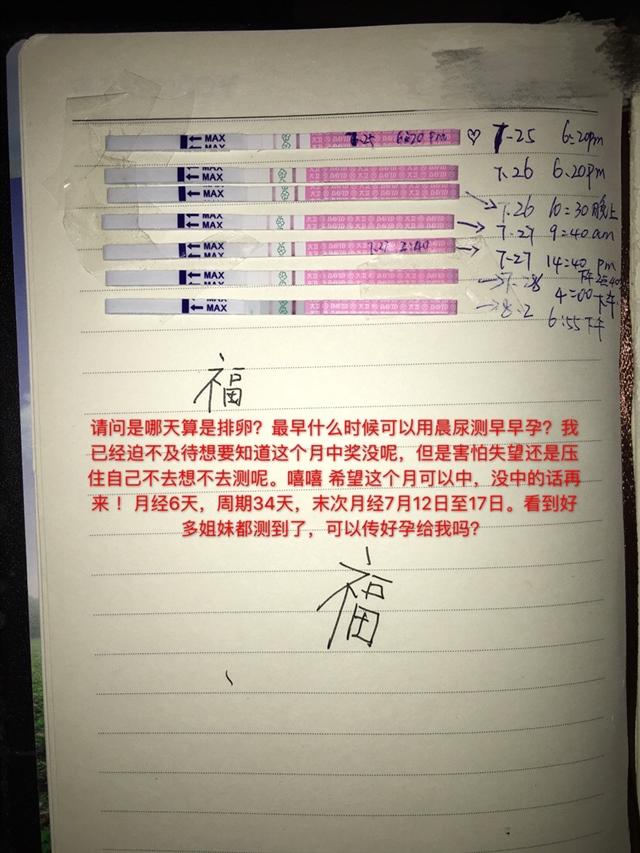 MAX
7-25 6:20pm
7-25 6:20pm
MAX
7.26 6.20pm
MAX
7.26 10:30晚上
MAX
7-27 9:40am
MAX
7.27 2:40
7-27 14:40 pm
下午2:40
MAX
7.28 4:00下午
MAX
8.2 6:55下午
福
请问是哪天算是排卵?最早什么时候可以用晨尿测早早孕?我
已经迫不及待想要知道这个月中奖没呢,但是害怕失望还是压
住自己不去想不去测呢。嘻嘻 希望这个月可以中,没中的话再
来!月经6天,周期34天,末次月经7月12日至17日。看到好
多姐妹都测到了,可以传好孕给我吗?
福